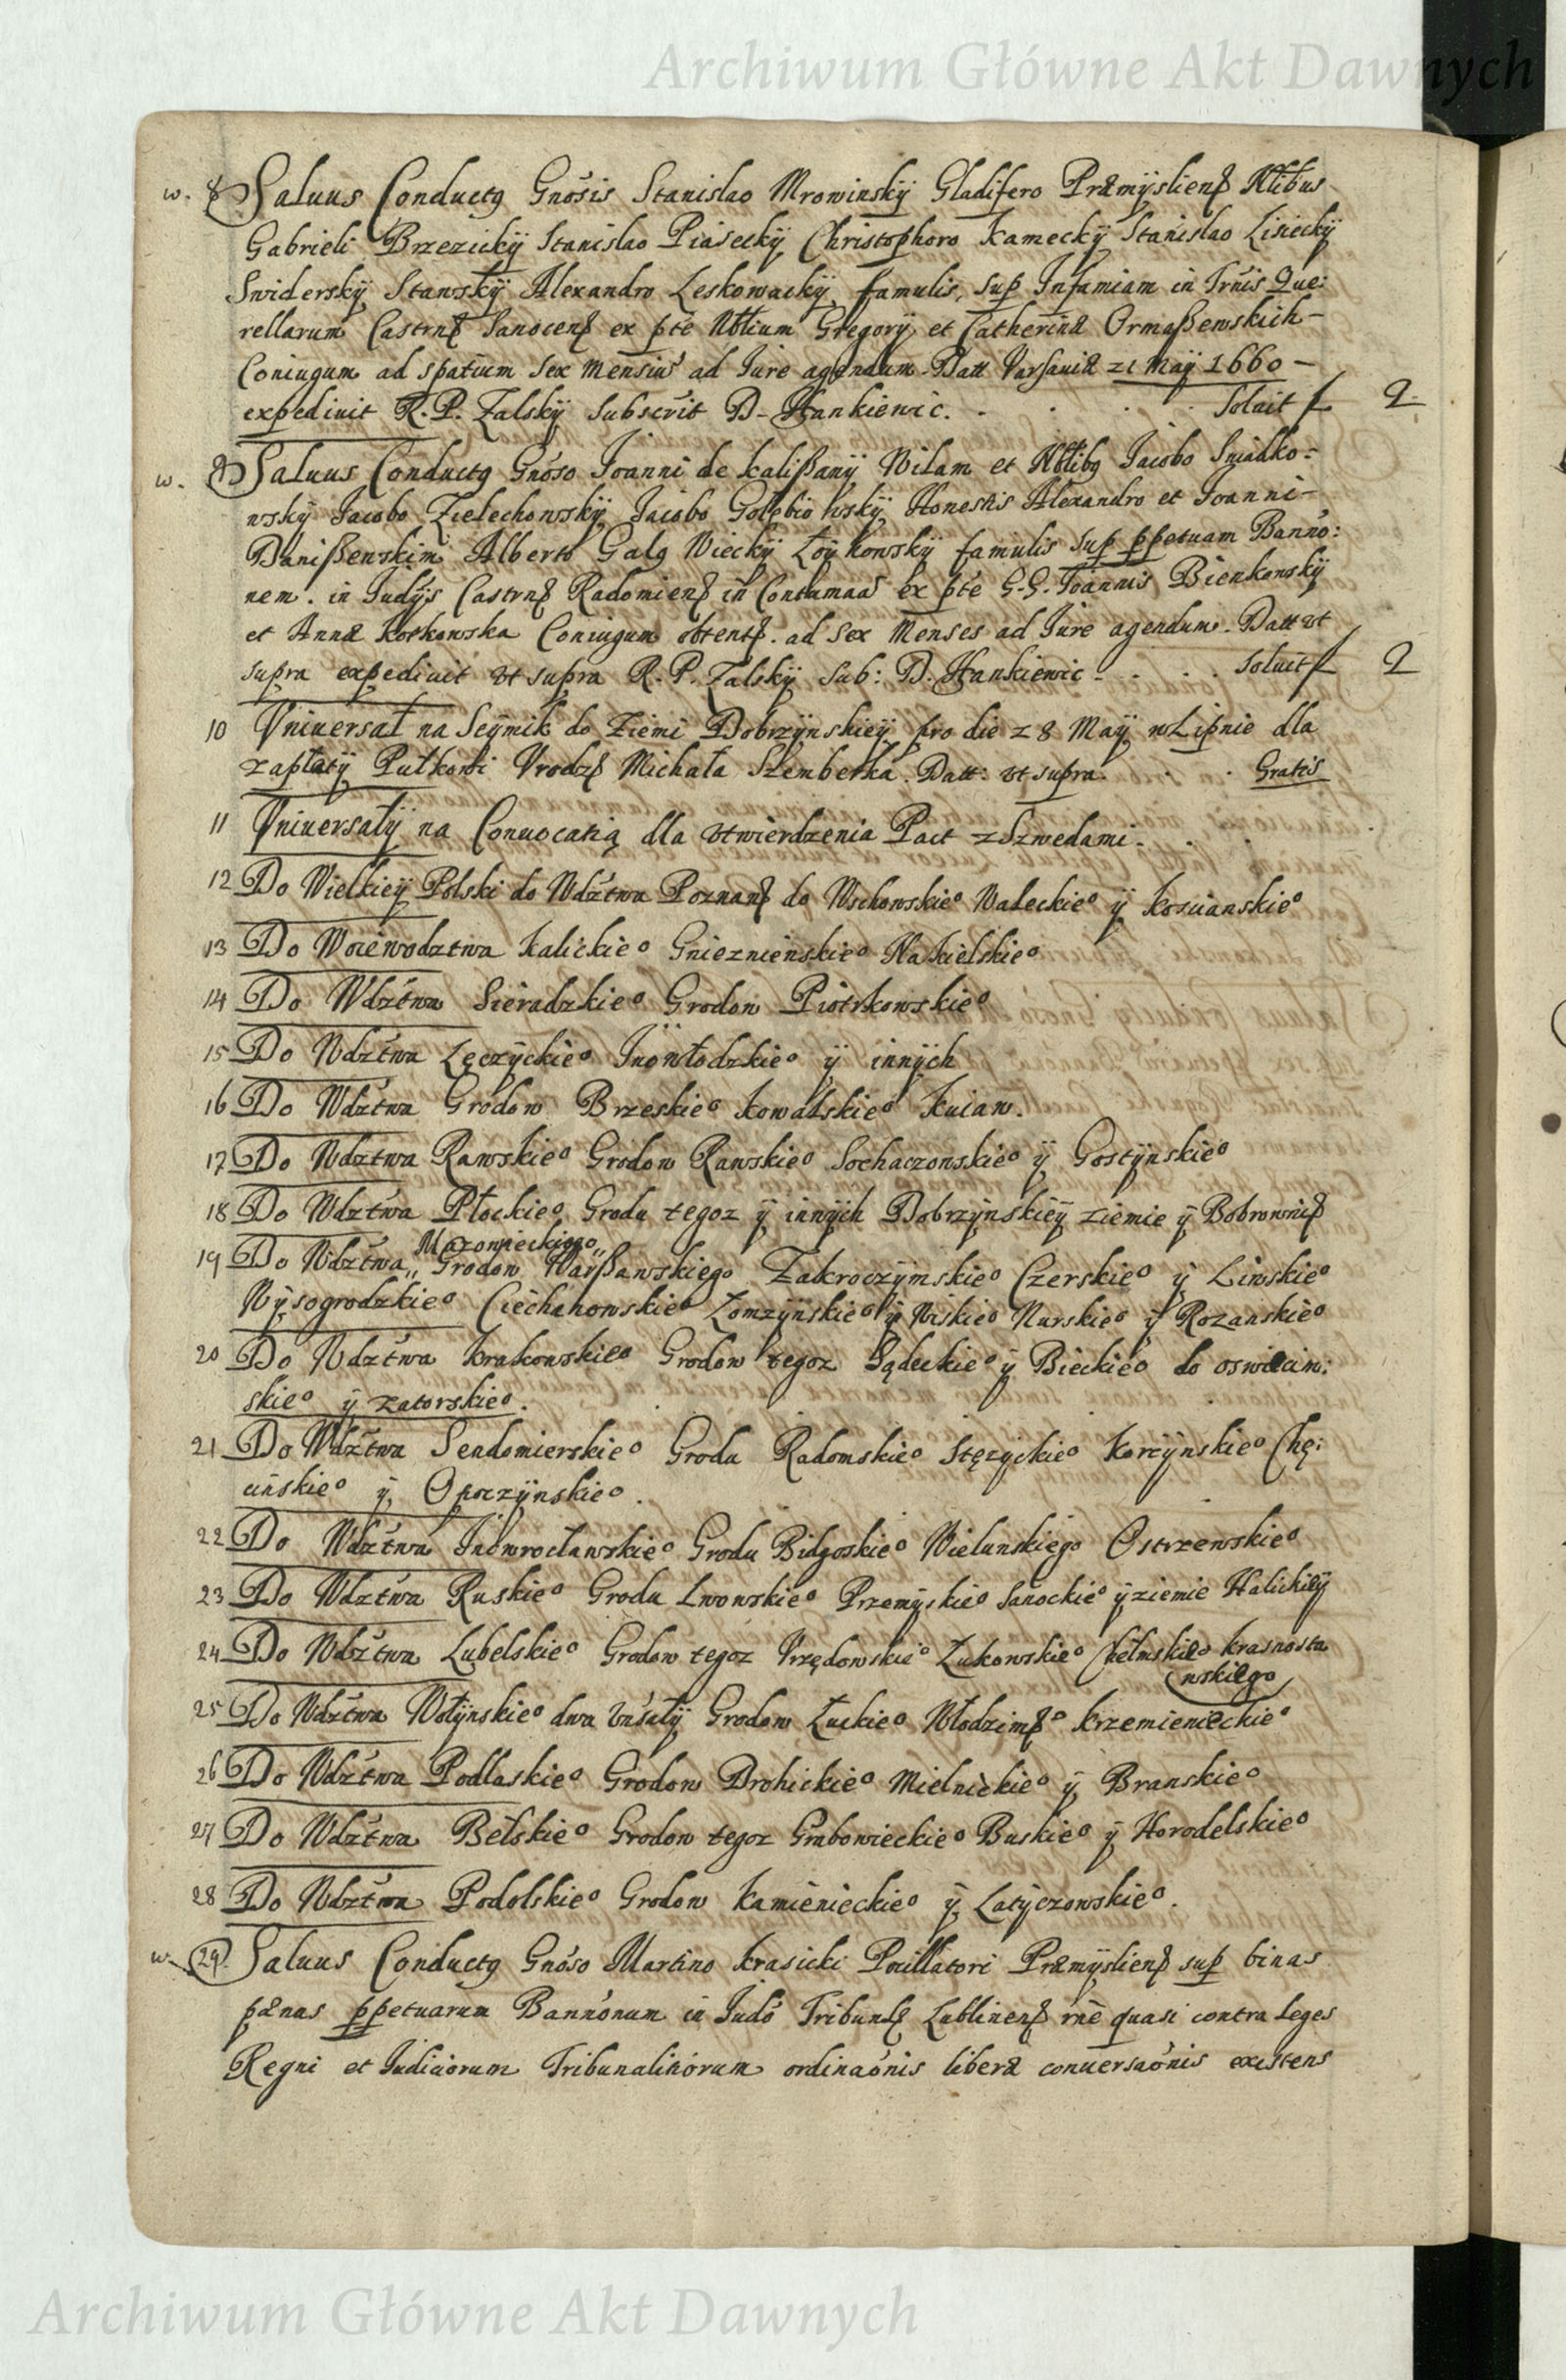 Archiwum Główne Akt Dawnych
w. 8 Saluus Conductq Gnosis Stanislao Mrowinskÿ Gladifero Præmÿsliens Nlibus
Gabrieli Brzezickÿ Stanislao Piaseckÿ Christophoro Kameckÿ Stanislao Lisieckÿ
Swiderskÿ Stawskÿ Alexandro Leskowackÿ famulis, sup Infamiam in Trnis Que:
rellarum Castrns Sanocens ex pte Nblium Gregorÿ et Catherinæ Ormaßewskich –
Coniugum ad spatium sex mensiu ad Iure agendum. Datt Varsauiæ 21 Maÿ 1660 –
expediuit R. P. Zalskÿ Subscrit D. Hankiewic. . . . . Soluit f 2
w. 9 Saluus Conductq Gnoso Ioanni de Kalißanÿ Wilam et Nblibq Iacobo Sniadko:
wskÿ Iacobo Zielechowskÿ Iacobo Gołębiowskÿ Honestis Alexandro et Ioanni –
Danißewskim Alberto Galq Wieckÿ Łoÿkowskÿ famulis sup ppetuam Banno:
nem. in Iudÿs Castrns Radomiens in Contumaa ex pte G.G. Ioannis Bienkowskÿ
et Annæ Kochowska Coniugum obtents. ad sex Menses ad Iure agendum. Datt vt
supra expediuit vt supra R. P. Zalskÿ Sub: D. Hankiewic . . . Soluit f 2
10 Vniuersał na Seÿmik do Ziemi Dobrzÿnskieÿ pro die 28 Maÿ w Lipnie dla
zapłatÿ Pułkowi Vrodzs Michała Szemberka. Datt: vt supra. . . Gratis
11 Vniuersałÿ na Conuocatią dla vtwierdzenia Pact z Szwedami. .
12 Do Wielkieÿ Polski do Wdztwa Poznans do Wschowskieo Wałeckieo ÿ Koscianskieo
13 Do Woiewodztwa Kalickieo Gnieznienskieo Nakielskieo
14 Do Wdztwa Sieradzkieo Grodow Piotrkowskieo
15 Do Wdztwa Lęczÿckieo Inowłodzkieo ÿ innÿch
16 Do Wdztwa Grodow Brzeskieo Kowalskieo Kuiaw.
17 Do Wdztwa Rawskieo Grodow Rawskieo Sochaczowskieo ÿ Gostÿnskieo
18 Do Wdztwa Płockieo Grodu tegoz ÿ innÿch Dobrzÿnskieÿ ziemie ÿ Bobrownis
Mazowieckiego
19 Do Wdztwa „ Grodow Warßawskiego Zakroczÿmskieo Czerskieo ÿ Liwskieo
Wÿsogrodzkieo Ciechanowskieo Łomzÿnskieo ÿ Wiskieo Nurskieo ÿ Rozanskieo
20 Do Wdztwa Krakowskieo Grodow tegoz Sądeckieo ÿ Bieckieo do oswiecim:
skieo ÿ zatorskieo.
21 Do Wdztwa Sendomierskieo Grodu Radomskieo Stęzÿckieo Korcÿnskieo Chę:
cinskieo ÿ Opoczÿnskieo.
22 Do Wdztwa Inowrocławskieo Grodu Bidgoskieo Wielunskiego Ostrzewskieo
23 Do Wdztwa Ruskieo Grodu Lwowskieo Przemÿskieo Sanockieo ÿ ziemie Halickieÿ
24 Do Wdztwa Lubelskieo Grodow tegoz Vrzędowskieo Łukowskieo Chełmskieo krasnosta
wskiego
25 Do Wdztwa Wołÿnskieo dwa vnsałÿ Grodow Łuckieo Włodzimso krzemienieckieo
26 Do Wdztwa Podlaskieo Grodow Drohickieo Mielnickieo ÿ Branskieo
27 Do Wdztwa Bełskieo Grodow tegoz Grabowieckieo Buskieo ÿ Horodelskieo
28 Do Wdztwa Podolskieo Grodow Kamienieckieo ÿ Latÿczowskieo.
w. 29. Saluus Conductq Gnoso Martino Krasicki Pocillatori Præmÿsliens sup binas
pænas ppetuarum Bannonum in Iudo Tribunls Lublinens rne quasi contra leges
Regni et Iudiciorum Tribunalitiorum ordinaonis liberæ conuersaonis existens
Archiwum Główne Akt Dawnych